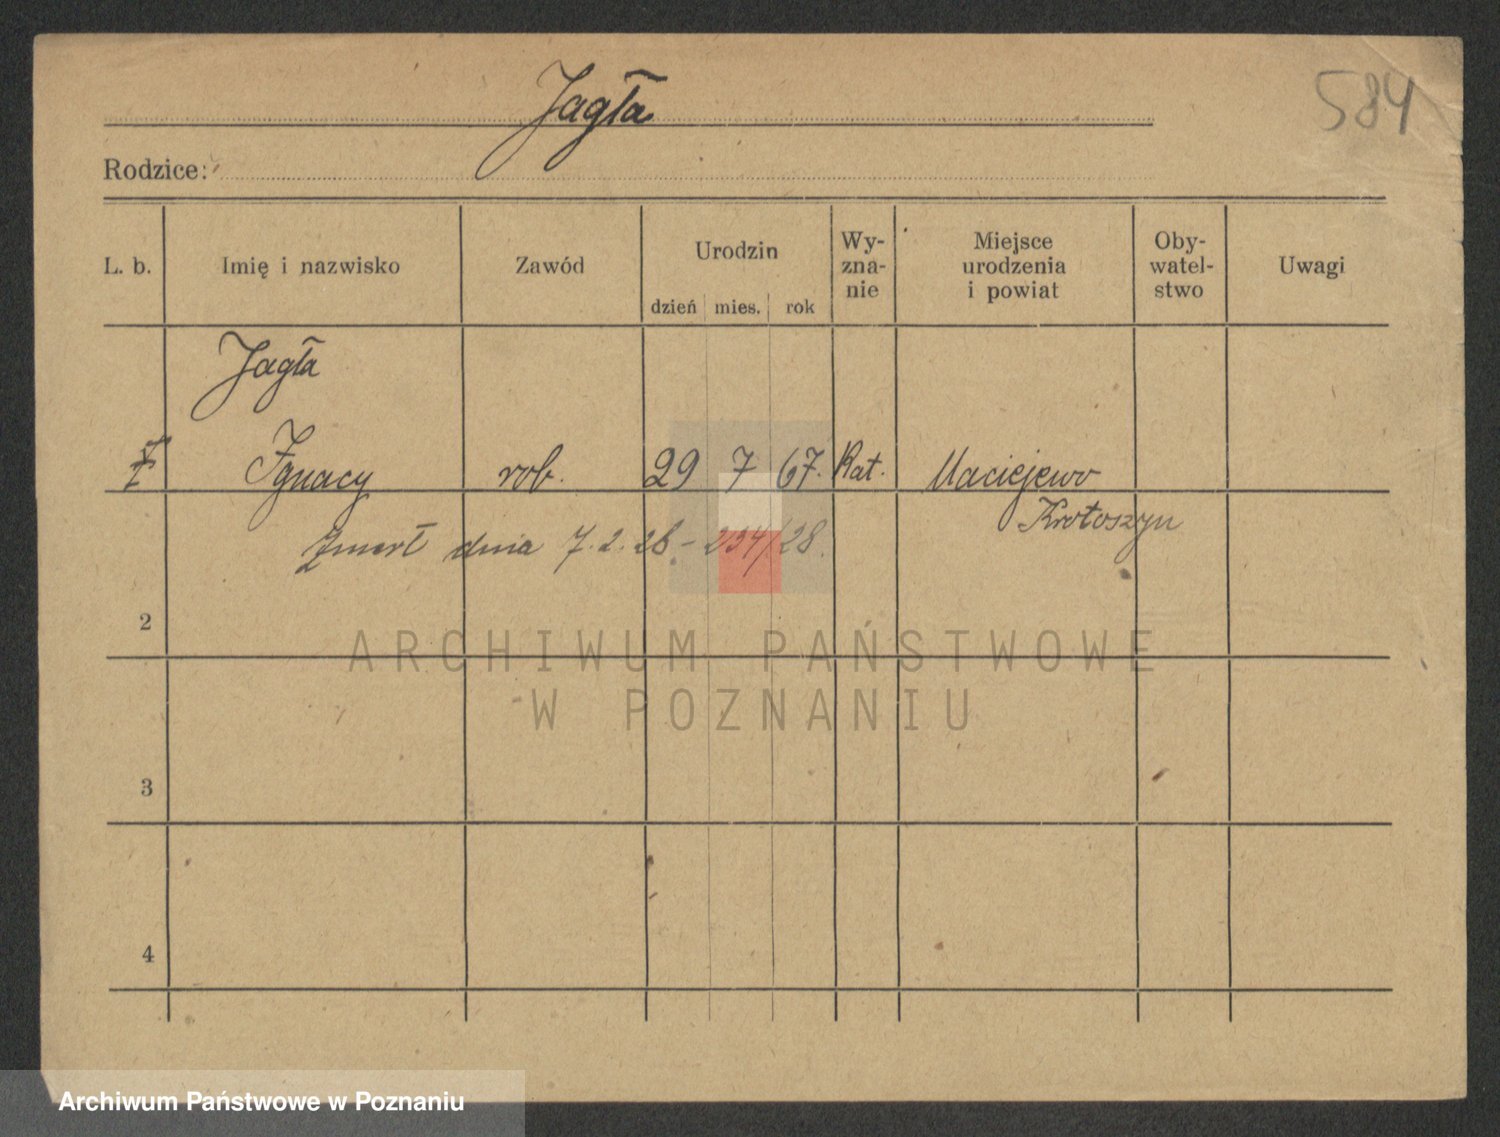 Jagła
584
Rodzice:
L. b.
Imię i nazwisko
Zawód
Urodzin
dzień mies. rok
Wy-
zna-
nie
Miejsce
urodzenia
i powiat
Oby-
watel-
stwo
Uwagi
Jagła
1 Ignacy rob. 29 7 67. Kat. Maciejewo
Krotoszyn
Zmarł dnia 7.2.28 - 234/28.
2
3
4
ARCHIWUM PAŃSTWOWE
W POZNANIU
Archiwum Państwowe w Poznaniu